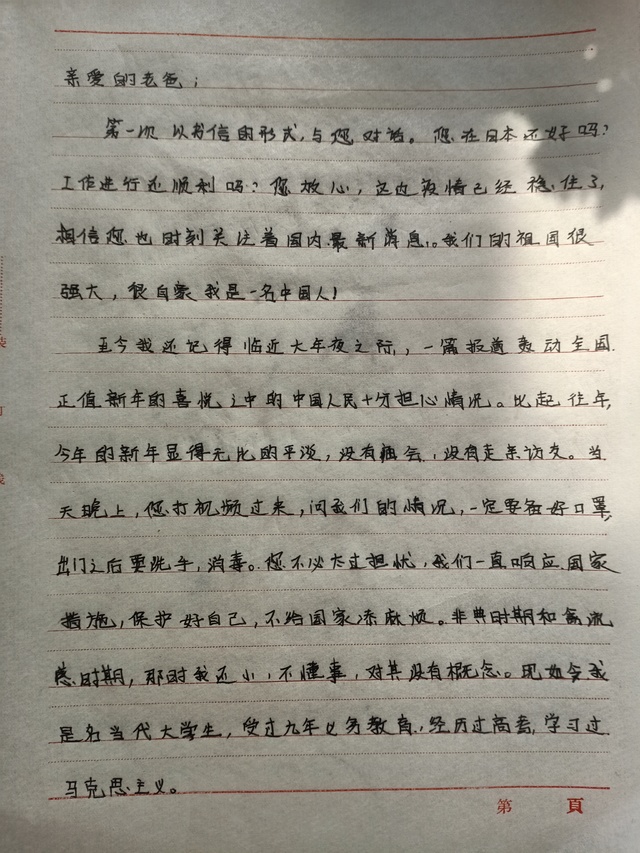 亲爱的老爸；
第一次以书信的形式，与您对话。您在日本还好吗？
工作进行还顺利吗？您放心，这边疫情已经稳住了，
相信您也时刻关注着国内最新消息。我们的祖国很
强大，很自豪我是一名中国人！
至今我还记得临近大年夜之际，一篇报道轰动全国
正值新年的喜悦之中的中国人民十分担心情况。比起往年，
今年的新年显得无比的平淡，没有聚会，没有走亲访友。当
天晚上，您打视频过来，问我们的情况，一定要备好口罩，
出门之后要洗手，消毒。您不必太过担忧，我们一直响应国家
措施，保护好自己，不给国家添麻烦。非典时期和禽流
感时期，那时我还小，不懂事，对其没有概念。现如今我
是名当代大学生，受过九年义务教育，经历过高考，学习过
马克思主义。
第 頁
装
订
线